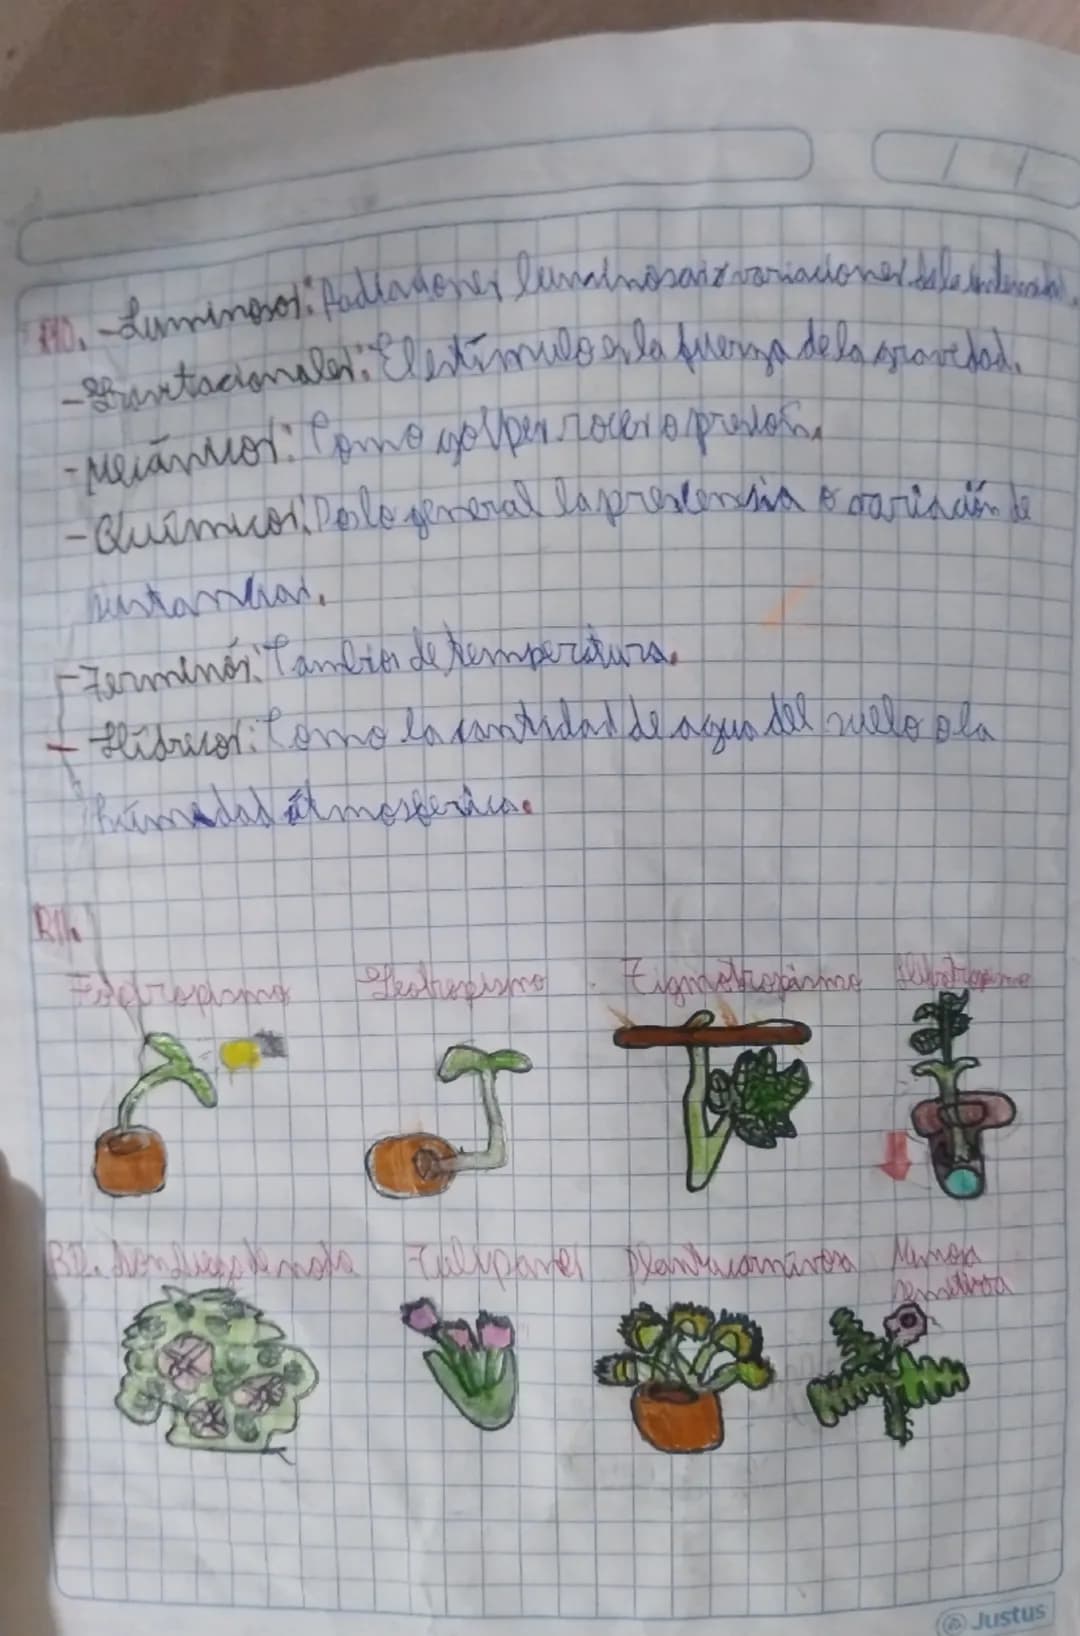 R10. -Luminosos: Radiaciones luminosas o variaciones de la
-Gravitacionales: El estímulo es la fuerza de la gravedad.
-Mecánicos: Como golpes roces o presión.
-Químicos: Por lo general la presencia o variación de
sustancias.
-Termicós: Cambios de temperatura.
- Hídricos: Como la cantidad de agua del suelo o la
humedad átmosferica.
R11.
Fototropismo Geotropismo Tigmotropismo Hidrotropismo
R12. Tulipanes Planta carnívora Mimosa
sensitiva
Justus